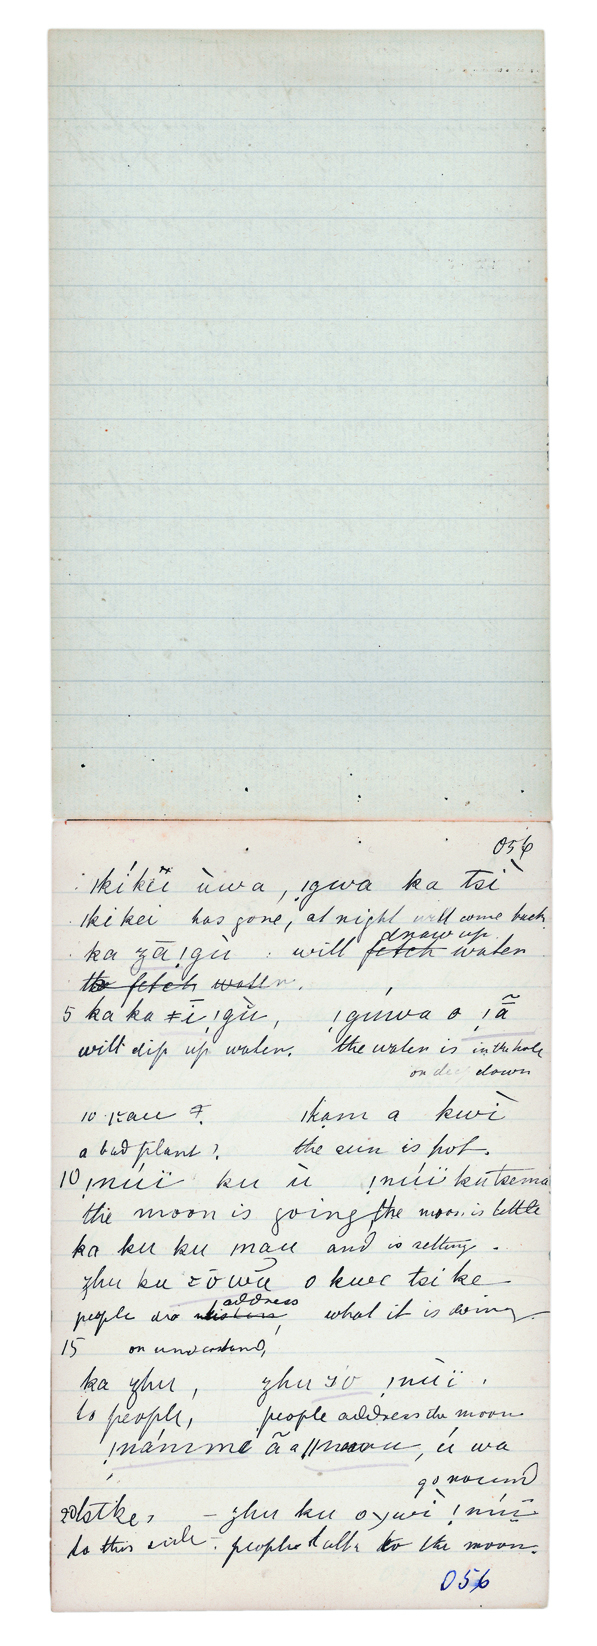 056
ǀkíkéï ùwa, ǃgwa ka tsì
ǀkikei has gone, at night will come back
draw up
ka zā ǃgù . will fetch water
to fetch water.
5 ka ka ǂī ǃgù, ǃgúwa o ǃã
will dip up water. the water is in the hole
or deep down
ǀkam a kwì
a bad plant? the sun is hot.
10 ǃnúï ku ù ǃnúï kutsema
the moon is going, the moon is little
ka ku ku mau and is setting.
zhu ku zōwū o kwe tsike
address
people are what it is doing
15 or understand,
ka zhu, zhu zo ǃnùï.
to people, people address the moon
ǃnámme ã a ú wa
go round
20 zhu ku ǃnúï
to this side. people talk to the moon.
056